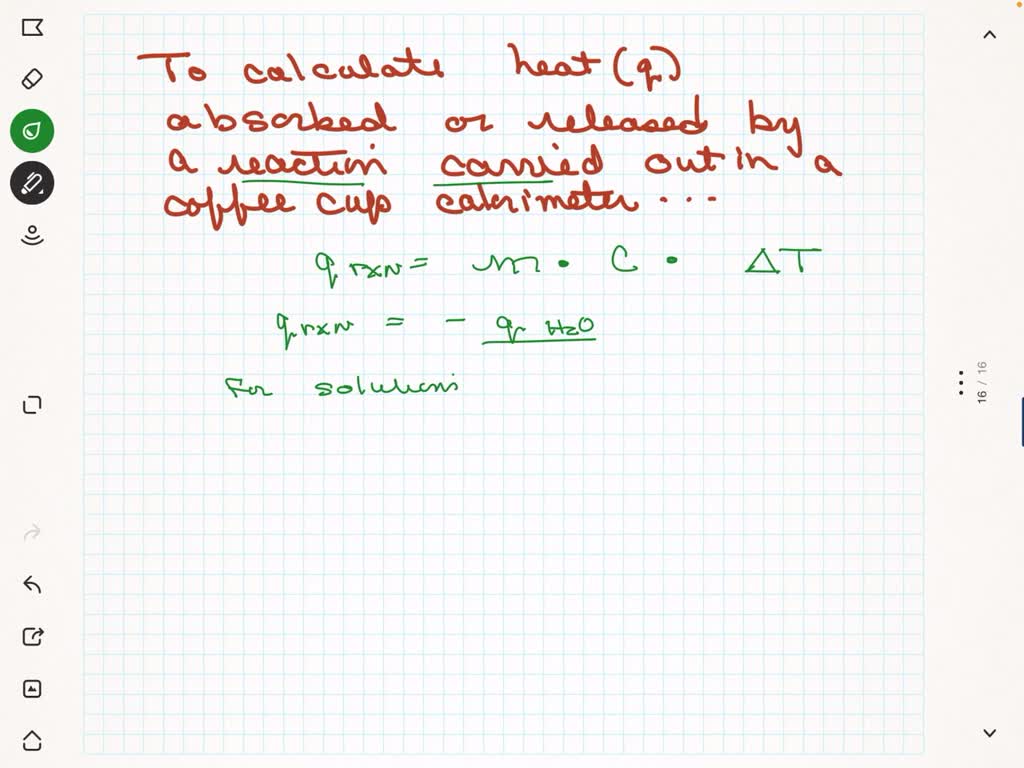 To calculate heat (q)
absorbed or released by
a reaction carried out in a
coffee cup calorimeter ...
q rxn = m • C • ΔT
q rxn = - q H2O
For solutions
16 / 16